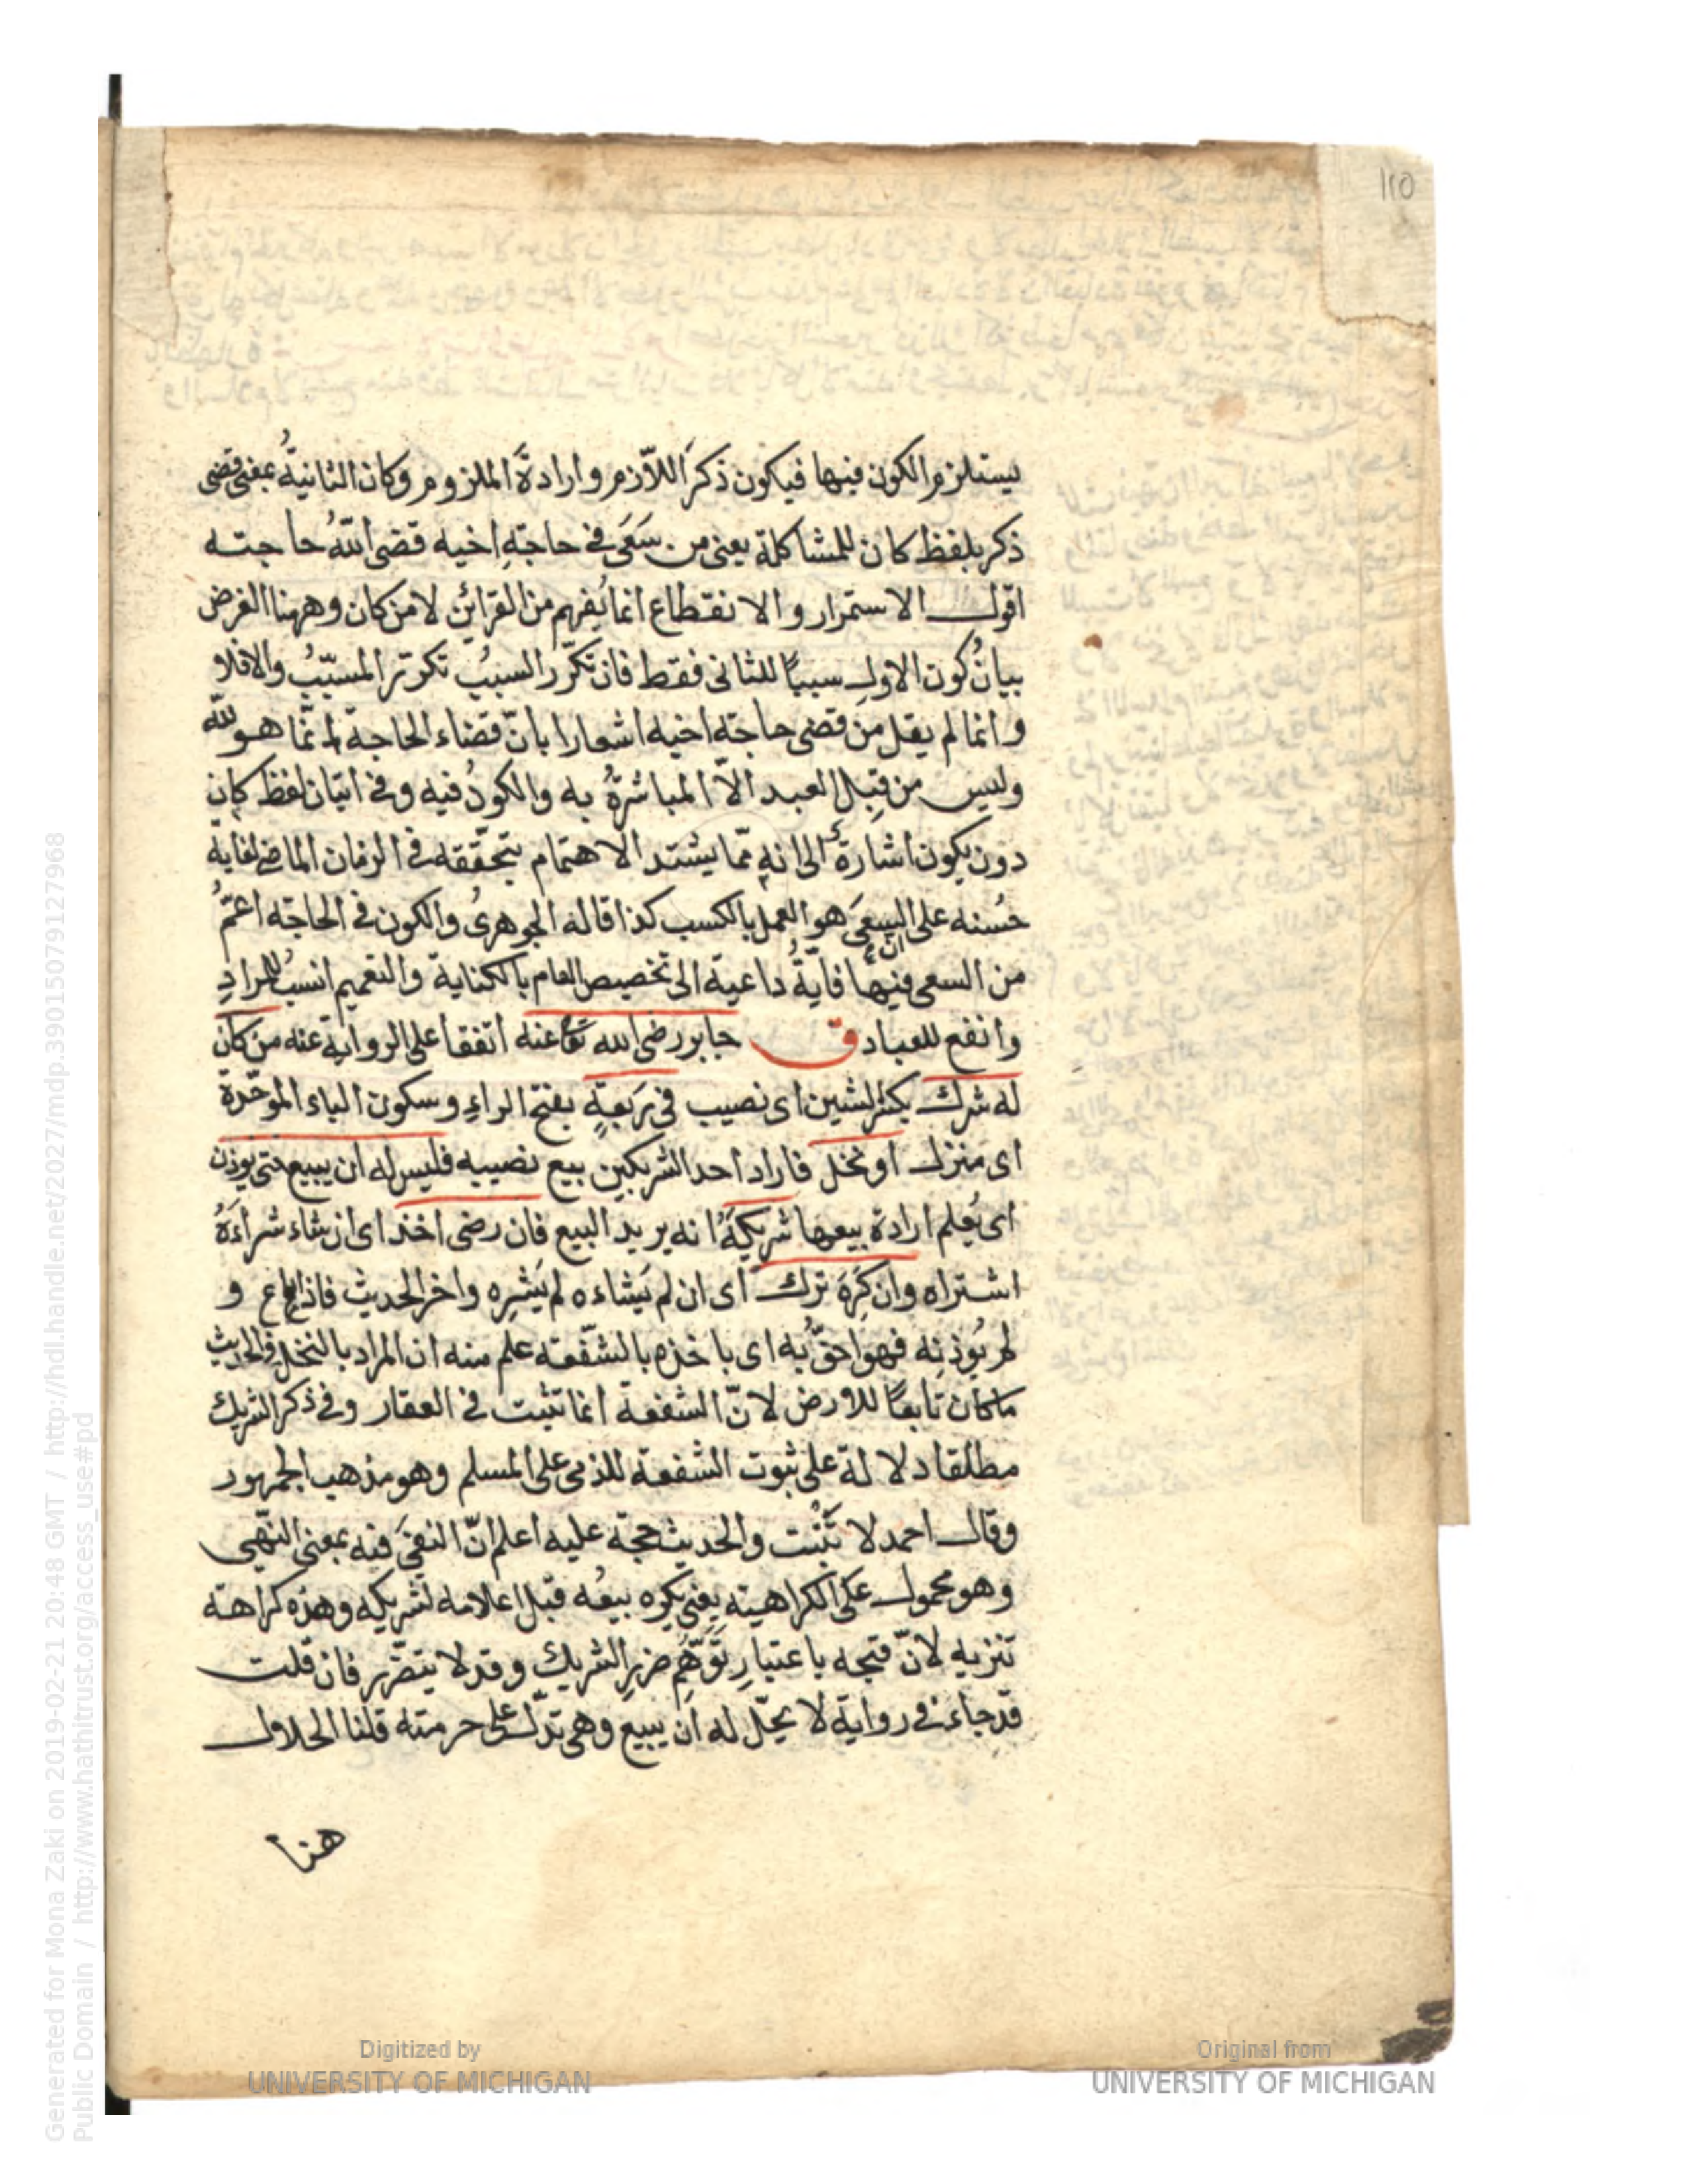 ١٢٥
يستلزم الكون فيها فيكون ذكرَ اللّازم وارادةَ الملزوم وكان الثانيةُ بمعنى قضى
ذكر بلفظ كان للمشاكلة يعنى من سَعَى فى حاجةِ اخيه قضى اللهُ حاجته
اقول الاستمرار والانقطاع انما يُفهم من القرائن لا من كان وههنا الغرض
بيانُ كون الاول سببًا للثانى فقط فان تكرّر السببُ تكرّر المسبّبُ والا فلا و
وانما لم يقل من قضى حاجة اخيه اشعارا بانّ قضاء الحاجة انّما هو لله
وليس من قِبَل العبد الّا المباشرةُ به والكونُ فيه وفى اتيان لفظ كان
دون يكون اشارةٌ الى انه ممّا يشتد الاهتمام بتحقّقه فى الزمان الماضى لغاية
حُسنه على ان السعىَ هو العمل بالكسب كذا قاله الجوهرىُ والكون فى الحاجة اعمّ
من السعى فيها فايّةُ داعية الى تخصيص العام بالكناية والتعميم انسبُ للمرادِ
وانفع للعباد ق جابر رضى الله تعا عنه اتفقا على الرواية عنه من كان
له شرك بكسر الشين اى نصيب فى رَبعةٍ بفتح الراءِ وسكون الباء الموحّدة
اى منزل او نخل فاراد احد الشريكين بيع نصيبه فليس له ان يبيع حتى يوذن
اى يُعلم ارادة بيعها شريكَهُ انه يريد البيع فان رضى اخذ اى ان شاء شراءَهُ
اشتراه وان كَرِهَ ترك اى ان لم يَشاءه لم يَشتره واخر الحديث فاذا باع و
لم يُوذِنه فهو احقُّ به اى باخذه بالشّفعة علم منه ان المراد بالنخل فى الحديث
ما كان تابعًا للارض لانّ الشفعة انما تثبت فى العقار وفى ذكر الشريك
مطلقا دلالة على ثبوت الشفعة للذمى على المسلم وهو مذهب الجمهور
وقال احمد لا تَثبُت والحديث حجة عليه اعلم انّ النفىَ فيه بمعنى النّهى
وهو محمول على الكراهية يعنى يكره بيعُه قبل اعلامه لشريكه وهذه كراهة
تنزيه لانّ قبحه باعتبارِ تَوَهُّمِ ضررِ الشريك وقد لا يتضرّر فان قلت
قد جاءَ فى رواية لا يحلّ له ان يبيع وهى تدلّ على حرمته قلنا الحلال
هنا
Generated for Mona Zaki on 2019-02-21 20:48 GMT / http://hdl.handle.net/2027/mdp.39015079127968
Public Domain / http://www.hathitrust.org/access_use#pd
Digitized by
UNIVERSITY OF MICHIGAN
Original from
UNIVERSITY OF MICHIGAN